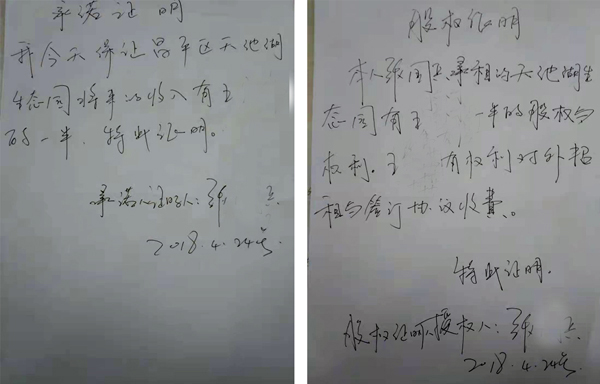 承诺证明
我今天保证昌平区天池湖
生态园将来的收入有王
的一半，特此证明。
承诺人证明人：张
2018.4.24号
股权证明
本人张国 承租的天池湖生
态园有王 一半的股权与
权利．王 有权利对外招
租与签订协议收费。
特此证明．
股权证明授权人：张
2018.4.24号